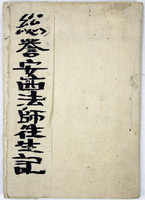 総誉安西法師往生記